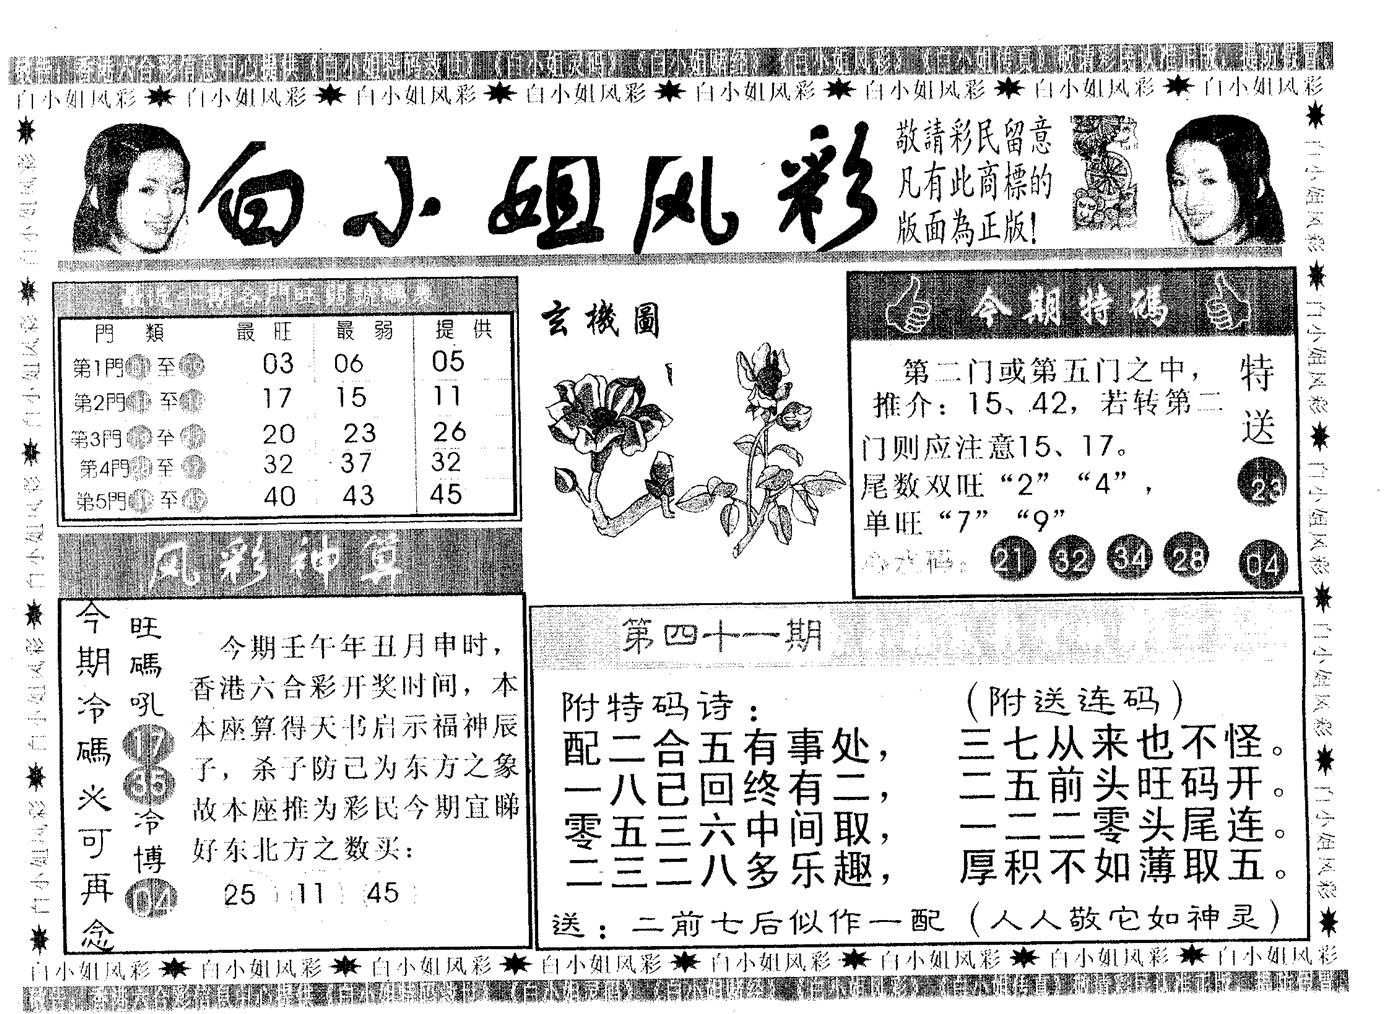 白小姐风彩 白小姐风彩 白小姐风彩 白小姐风彩 白小姐风彩 白小姐风彩 白小姐风彩 白小姐风彩
白小姐风彩
敬請彩民留意
凡有此商標的
版面為正版！
最近十期各門旺弱號碼表
門類 最旺 最弱 提供
第1門 至 03 06 05
第2門 至 17 15 11
第3門 至 20 23 26
第4門 至 32 37 32
第5門 至 40 43 45
玄機圖
今期特码
第二门或第五门之中，
推介：15、42，若转第二
门则应注意15、17。
尾数双旺“2”“4”，
单旺“7”“9”
心水码： 21 32 34 28
特送
23
04
风彩神算
今期冷碼火可再念
旺碼吼
17
35
冷博
04
今期壬午年丑月申时，
香港六合彩开奖时间，本
本座算得天书启示福神辰
子，杀子防己为东方之象
故本座推为彩民今期宜睇
好东北方之数买：
25 11 45
第四十一期
附特码诗： （附送连码）
配二合五有事处， 三七从来也不怪。
一八已回终有二， 二五前头旺码开。
零五三六中间取， 一二二零头尾连。
二三二八多乐趣， 厚积不如薄取五。
送：二前七后似作一配（人人敬它如神灵）
白小姐风彩 白小姐风彩 白小姐风彩 白小姐风彩 白小姐风彩 白小姐风彩 白小姐风彩 白小姐风彩